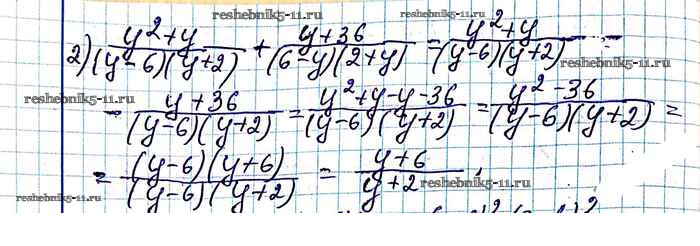 reshebnik5-11.ru reshebnik5-11.ru
2) (y²+y)/((y-6)(y+2)) + (y+36)/((6-y)(2+y)) = (y²+y)/((y-6)(y+2)) -
reshebnik5-11.ru reshebnik5-11.ru reshebnik5-11.ru
- (y+36)/((y-6)(y+2)) = (y²+y-y-36)/((y-6)(y+2)) = (y²-36)/((y-6)(y+2)) =
= ((y-6)(y+6))/((y-6)(y+2)) = (y+6)/(y+2);
reshebnik5-11.ru
reshebnik5-11.ru